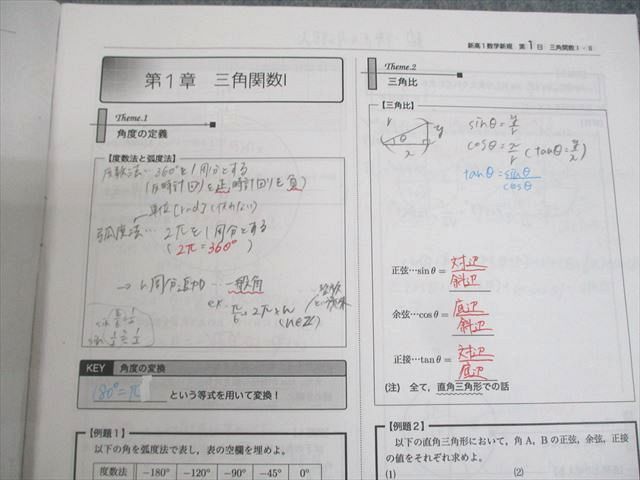 新高1数学新規 第1日 三角関数I・II
第1章 三角関数I
Theme.1
角度の定義
【度数法と弧度法】
度数法… 360°を1周分とする
(反時計回りを正, 時計回りを負)
単位[rad](使わない)
弧度法… 2πを1周分とする
(2π=360°)
→ n周分追加…一般角
ex. π/6+2π×n
(n∈Z)
KEY 角度の変換
180°=π という等式を用いて変換!
【例題1】
以下の角を弧度法で表し,表の空欄を埋めよ。
度数法 -180° -120° -90° -45° 0°
Theme.2
三角比
【三角比】
r θ x y
sinθ=y/r
cosθ=x/r (tanθ=y/x)
tanθ=sinθ/cosθ
正弦…sinθ=対辺/斜辺
余弦…cosθ=底辺/斜辺
正接…tanθ=対辺/底辺
(注) 全て,直角三角形での話
【例題2】
以下の直角三角形において,角A,Bの正弦,余弦,正接
の値をそれぞれ求めよ。
(1) (2)